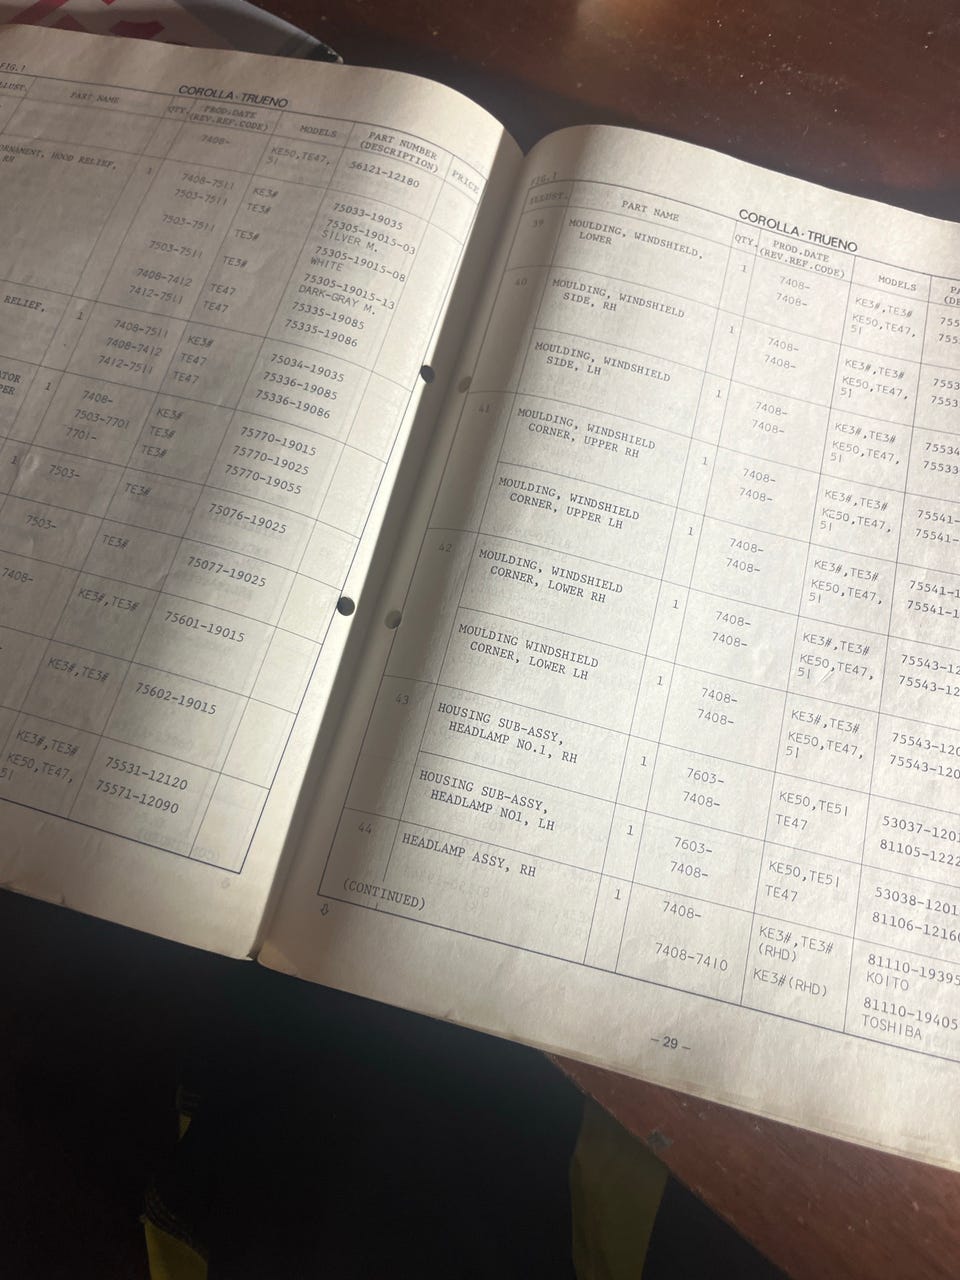 FIG.1
COROLLA·TRUENO
ILLUST. PART NAME QTY. PROD.DATE (REV.REF.CODE) MODELS PART NUMBER (DESCRIPTION) PRICE
7408- KE50,TE47, 51 56121-12180
ORNAMENT, HOOD RELIEF, RH 1 7408-7511 KE3# 75033-19035
7503-7511 TE3# 75305-19015-03
SILVER M.
7503-7511 TE3# 75305-19015-08
WHITE
7503-7511 TE3# 75305-19015-13
DARK-GRAY M.
7408-7412 TE47 75335-19085
7412-7511 TE47 75335-19086
RELIEF, 1 7408-7511 KE3# 75034-19035
7408-7412 TE47 75336-19085
7412-7511 TE47 75336-19086
ATOR 1 7408- KE3# 75770-19015
PER 7503-7701 TE3# 75770-19025
7701- TE3# 75770-19055
1 7503- TE3# 75076-19025
7503- TE3# 75077-19025
7408- KE3#,TE3# 75601-19015
KE3#,TE3# 75602-19015
KE3#,TE3# 75531-12120
KE50,TE47, 51 75571-12090
FIG.1
COROLLA·TRUENO
ILLUST. PART NAME QTY. PROD.DATE (REV.REF.CODE) MODELS
39 MOULDING, WINDSHIELD, 1 7408- KE3#,TE3#
LOWER 7408- KE50,TE47, 51
40 MOULDING, WINDSHIELD 1 7408- KE3#,TE3# 7553
SIDE, RH 7408- KE50,TE47, 51 7553
MOULDING, WINDSHIELD 1 7408- KE3#,TE3# 75534
SIDE, LH 7408- KE50,TE47, 51 75533
41 MOULDING, WINDSHIELD 1 7408- KE3#,TE3# 75541-
CORNER, UPPER RH 7408- KE50,TE47, 51 75541-
MOULDING, WINDSHIELD 1 7408- KE3#,TE3# 75541-1
CORNER, UPPER LH 7408- KE50,TE47, 51 75541-1
42 MOULDING, WINDSHIELD 1 7408- KE3#,TE3# 75543-12
CORNER, LOWER RH 7408- KE50,TE47, 51 75543-12
MOULDING WINDSHIELD 1 7408- KE3#,TE3# 75543-120
CORNER, LOWER LH 7408- KE50,TE47, 51 75543-120
43 HOUSING SUB-ASSY, 1 7603- KE50,TE51 53037-1201
HEADLAMP NO.1, RH 7408- TE47 81105-1222
HOUSING SUB-ASSY, 1 7603- KE50,TE51 53038-1201
HEADLAMP NO1, LH 7408- TE47 81106-12160
44 HEADLAMP ASSY, RH 1 7408- KE3#,TE3# (RHD) 81110-19395
KOITO
7408-7410 KE3#(RHD) 81110-19405
TOSHIBA
(CONTINUED)
- 29 -